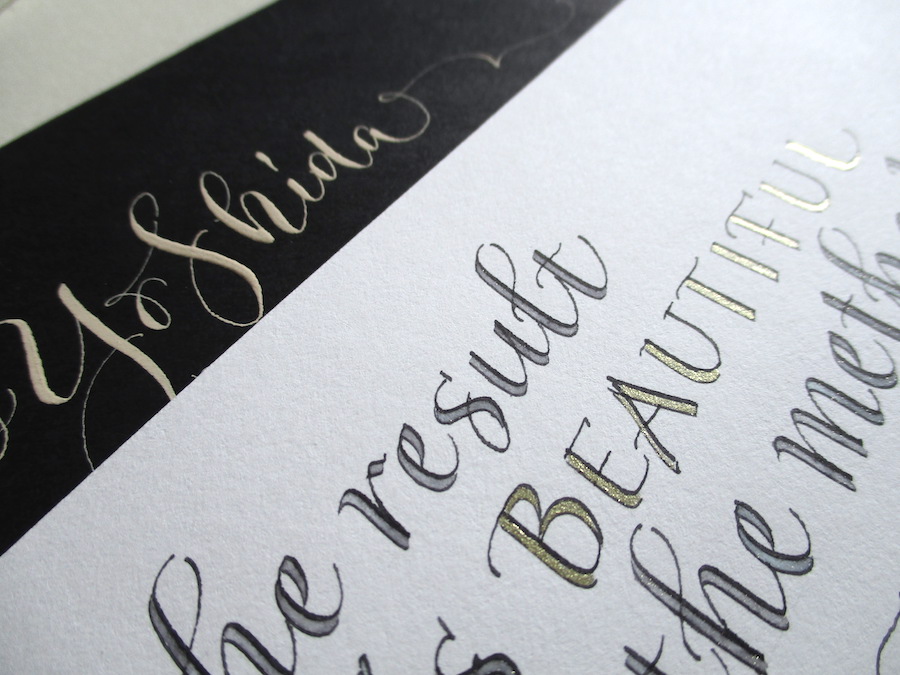 Yoshida
he result
s BEAUTIFUL
the meth